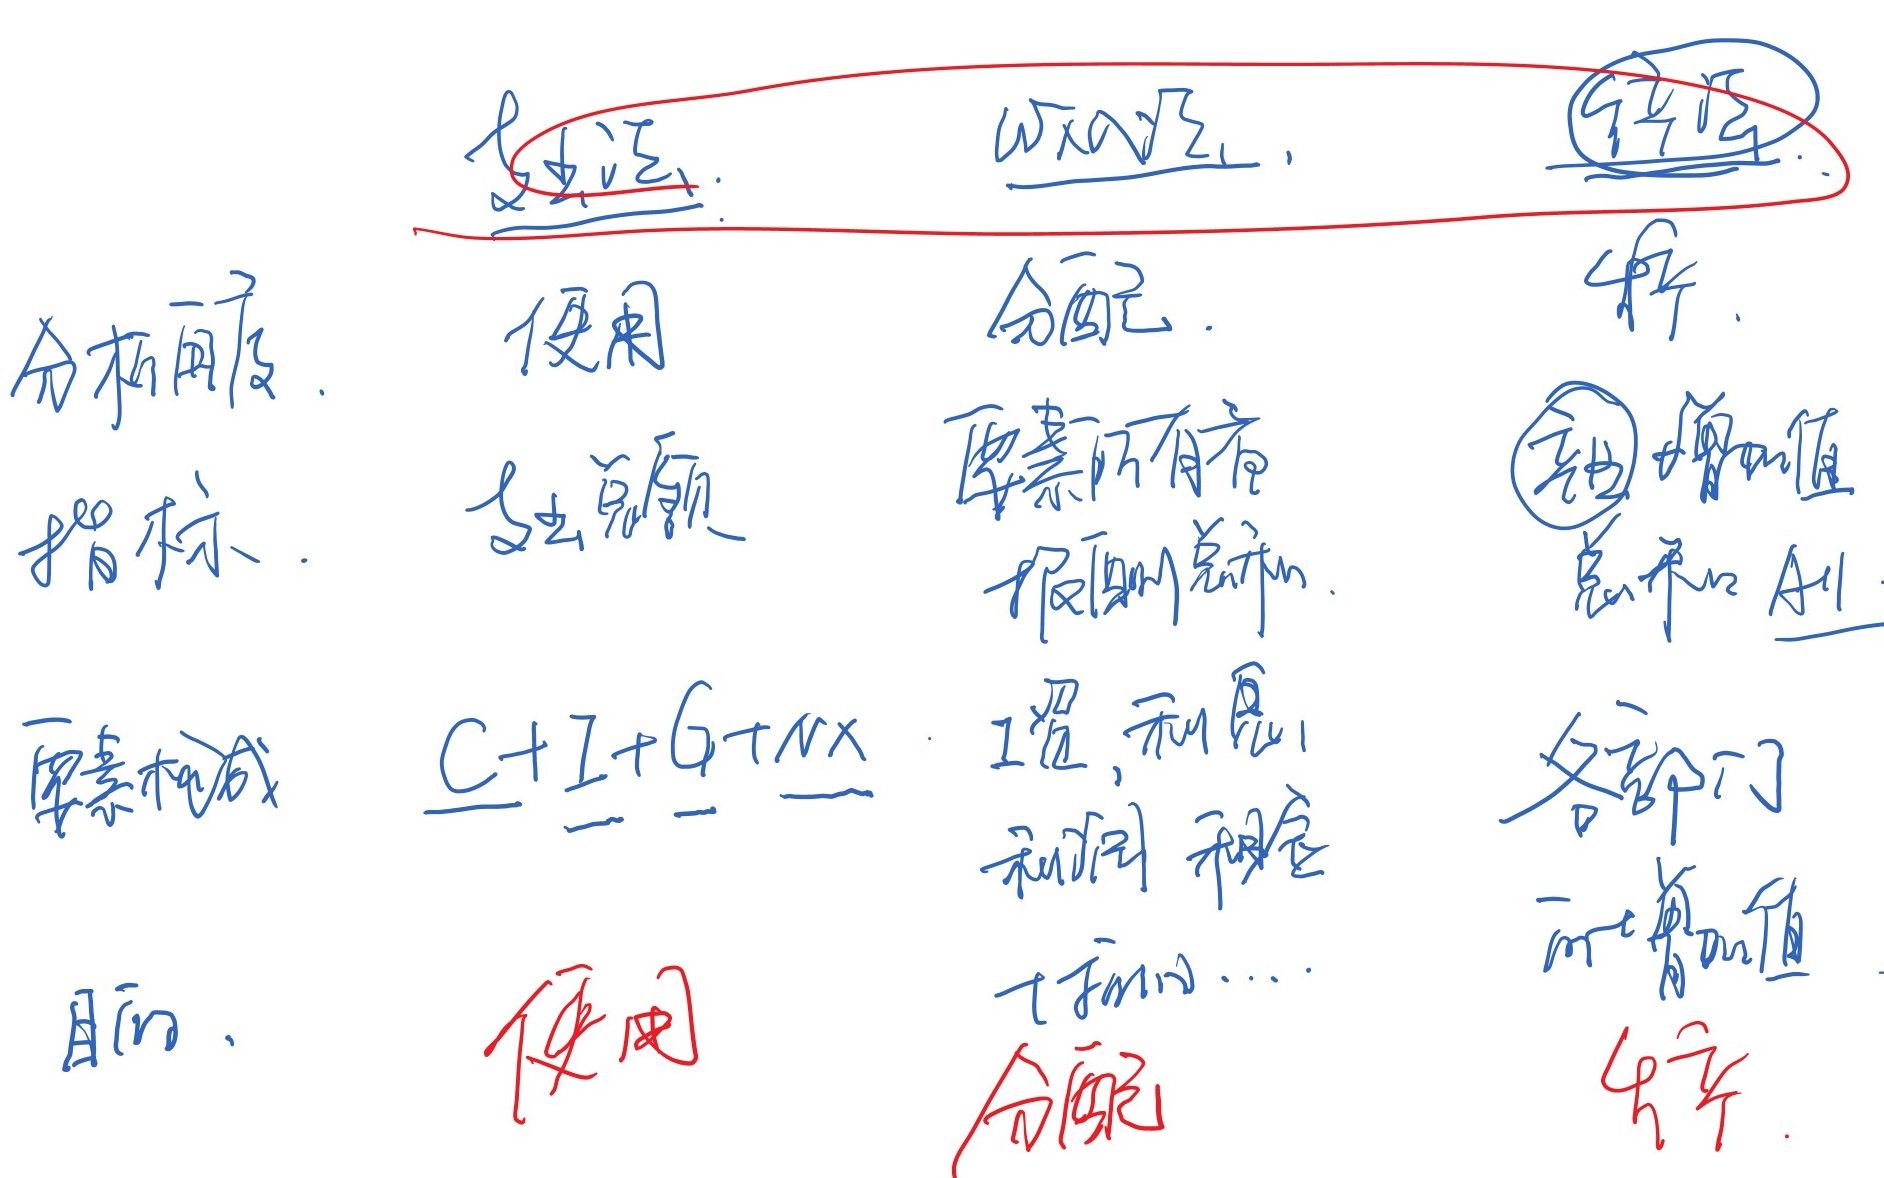 支出法 收入法 生产法
分析角度 使用 分配 生产
指标 支出总额 要素所有者 增加值
报酬的总和 总和 All
要素构成 C+I+G+NX 工资,利息, 各部门
利润 租金 的增加值
目的 使用 分配 生产